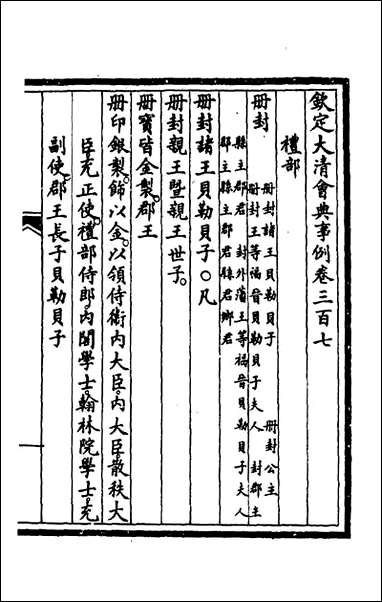 欽定大清會典事例卷三百七
禮部
冊封
冊封諸王貝勒貝子 冊封公主
冊封王等福晉貝勒貝子夫人 封郡主
縣主郡君 封外藩王等福晉貝勒貝子夫人
郡主縣主郡君縣君鄉君
冊封諸王貝勒貝子〇凡
冊封親王暨親王世子。
冊寶皆金製。郡王
冊印銀製。飾以金。以領侍衛內大臣。內大臣。散秩大
臣充正使。禮部侍郎。內閣學士。翰林院學士。充
副使。郡王長子貝勒貝子